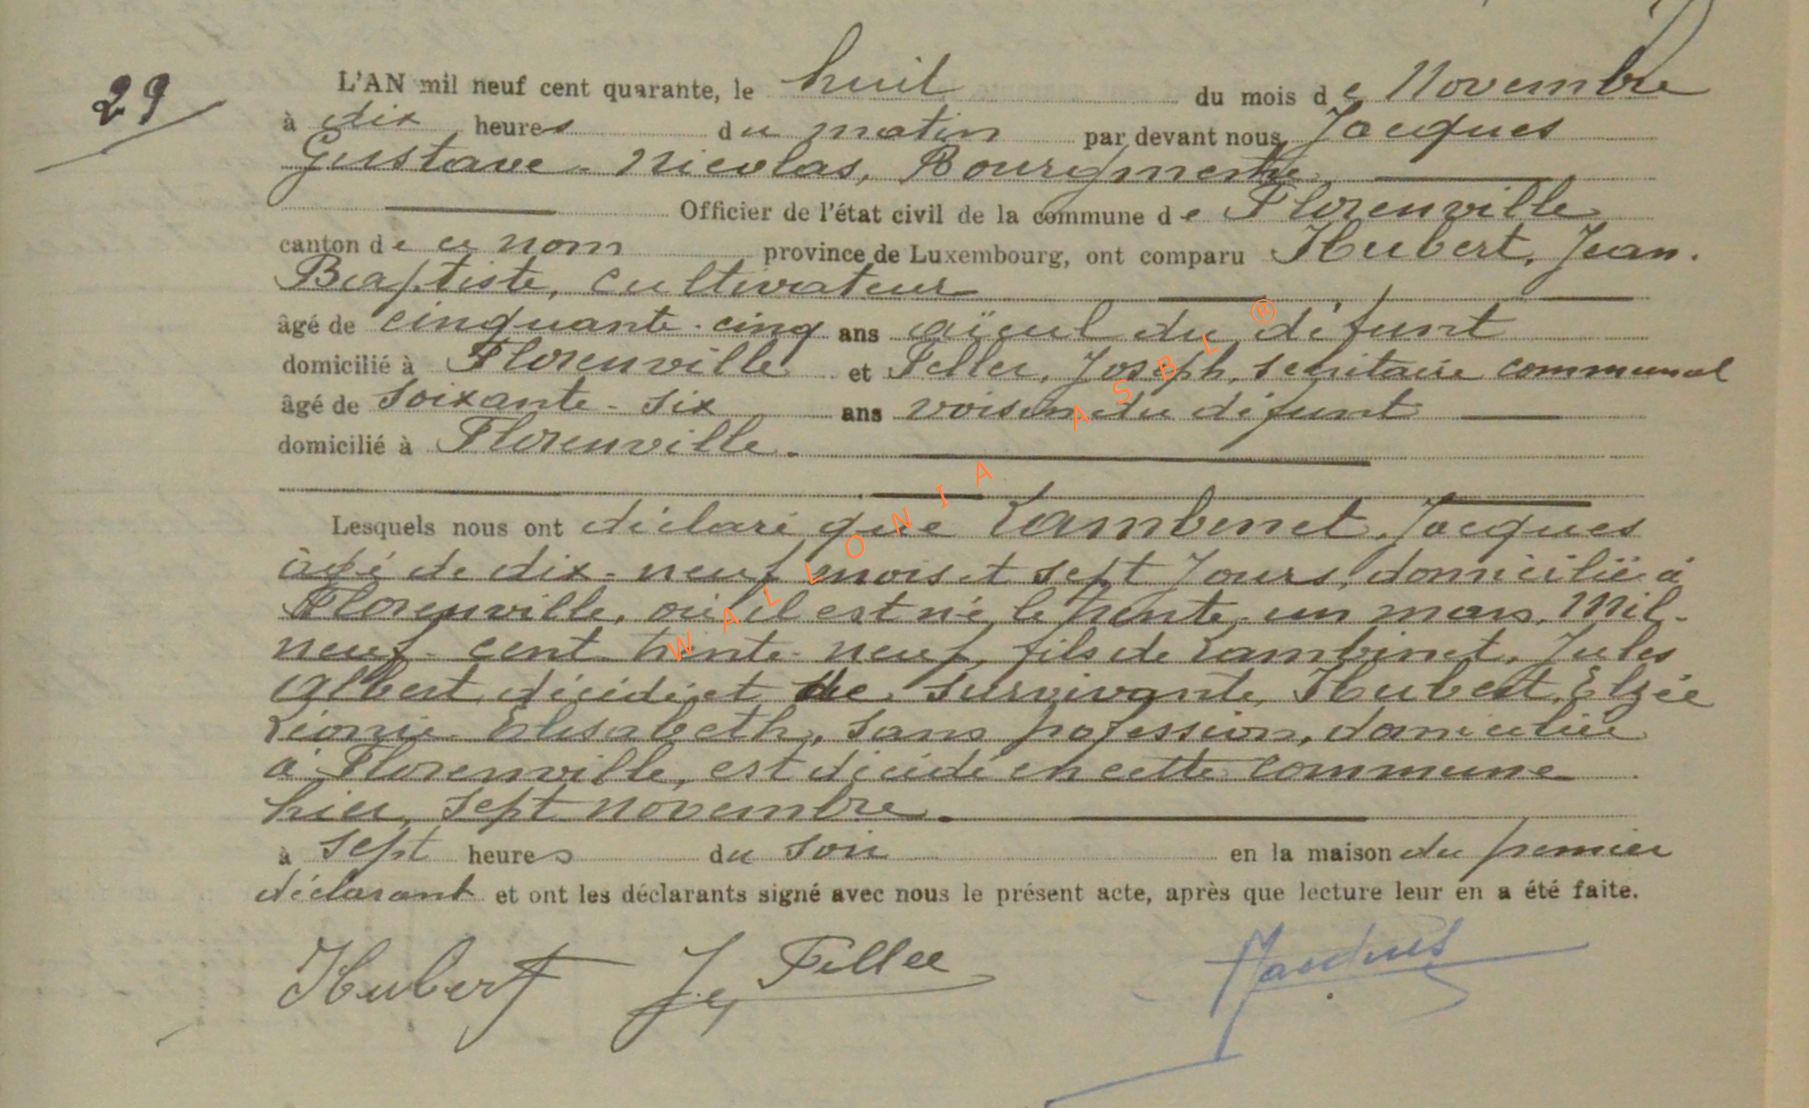 29
L'AN mil neuf cent quarante, le huit du mois de Novembre
à dix heures du matin par devant nous, Jacques
Gustave-Nicolas,
Officier de l'état civil de la commune de Florenville
canton de ce nom province de Luxembourg, ont comparu Hubert, Jean.
Baptiste, cultivateur
âgé de cinquante-cinq ans aïeul du défunt
domicilié à Florenville et Feller, Joseph, secrétaire communal
âgé de soixante-six ans voisin du défunt
domicilié à Florenville.
Lesquels nous ont déclaré que Lambinet, Jacques
âgé de dix-neuf mois et sept jours, domicilié à
Florenville, où il est né le trente-un mars, mil-
neuf-cent trente-neuf, fils de Lambinet, Jules
Albert, décédé et de survivante, Hubert, Elzée
Léonie Elisabeth, sans profession, domiciliée
à Florenville, est décédé en cette commune
hier, sept novembre.
à sept heures du soir en la maison du premier
déclarant et ont les déclarants signé avec nous le présent acte, après que lecture leur en a été faite.
Hubert J Feller
WALLONIA ASBL ®